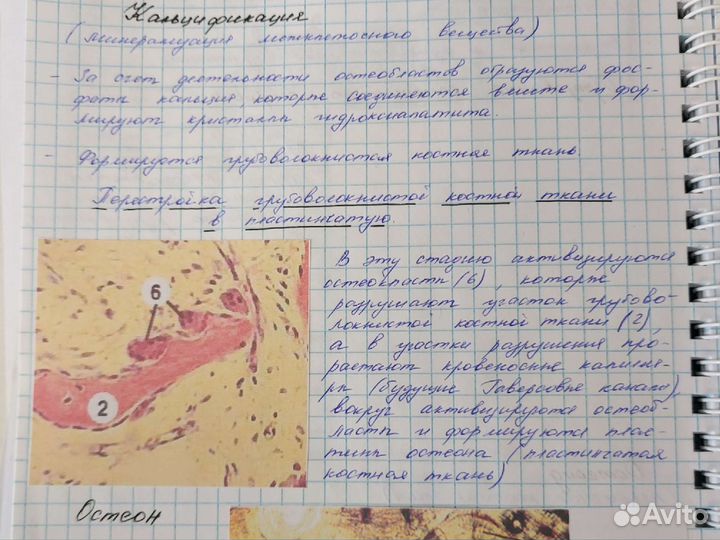 Кальцификация
(минерализация межклеточного вещества)
- За счет деятельности остеобластов образуются фос-
фаты кальция, которые соединяются вместе и фор-
мируют кристаллы гидроксиапатита.
- Формируется грубоволокнистая костная ткань.
Перестройка грубоволокнистой костной ткани
в пластинчатую.
В эту стадию активизируются
остеокласты (6), которые
разрушают участок грубово-
локнистой костной ткани (2),
а в участки разрушения про-
растают кровеносные капилля-
ры (будущие Гаверсовы канала),
вокруг активизируются остеоб-
ласты и формируются плас-
тины остеона (пластинчатая
костная ткань)
6
2
Остеон
Avito